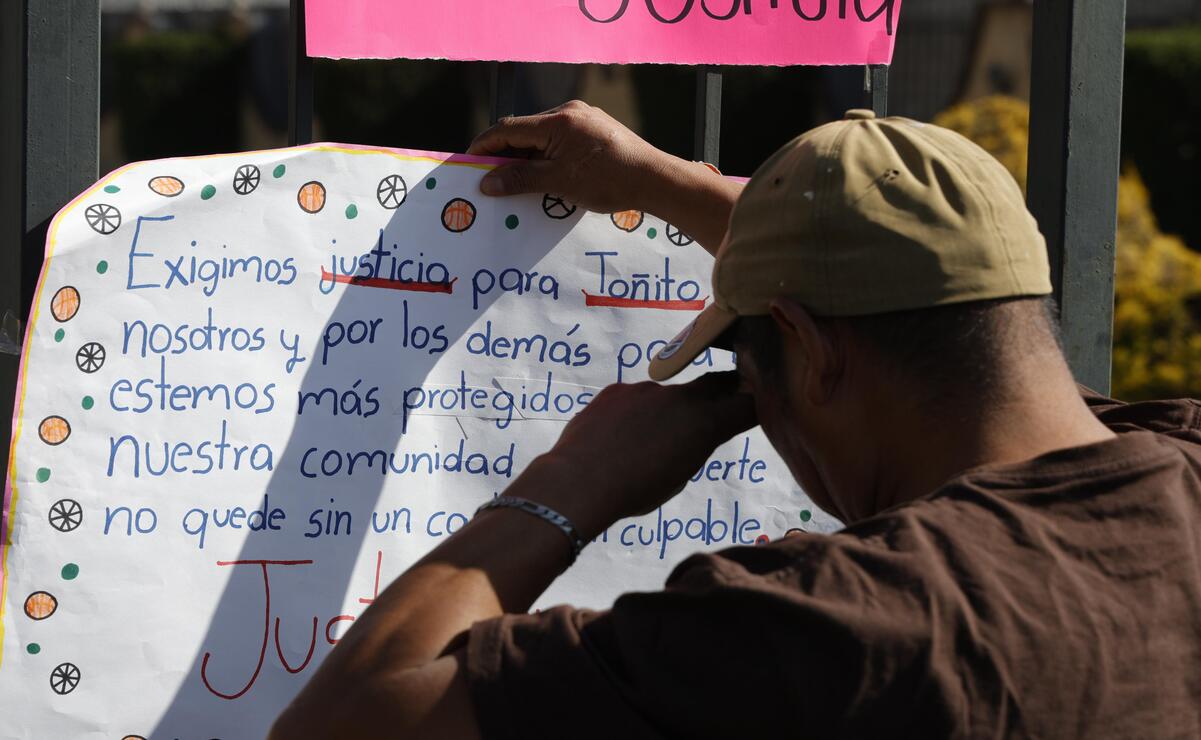 Exigimos justicia para Toñito
nosotros y por los demás para
estemos más protegidos
nuestra comunidad
no quede sin un culpable.